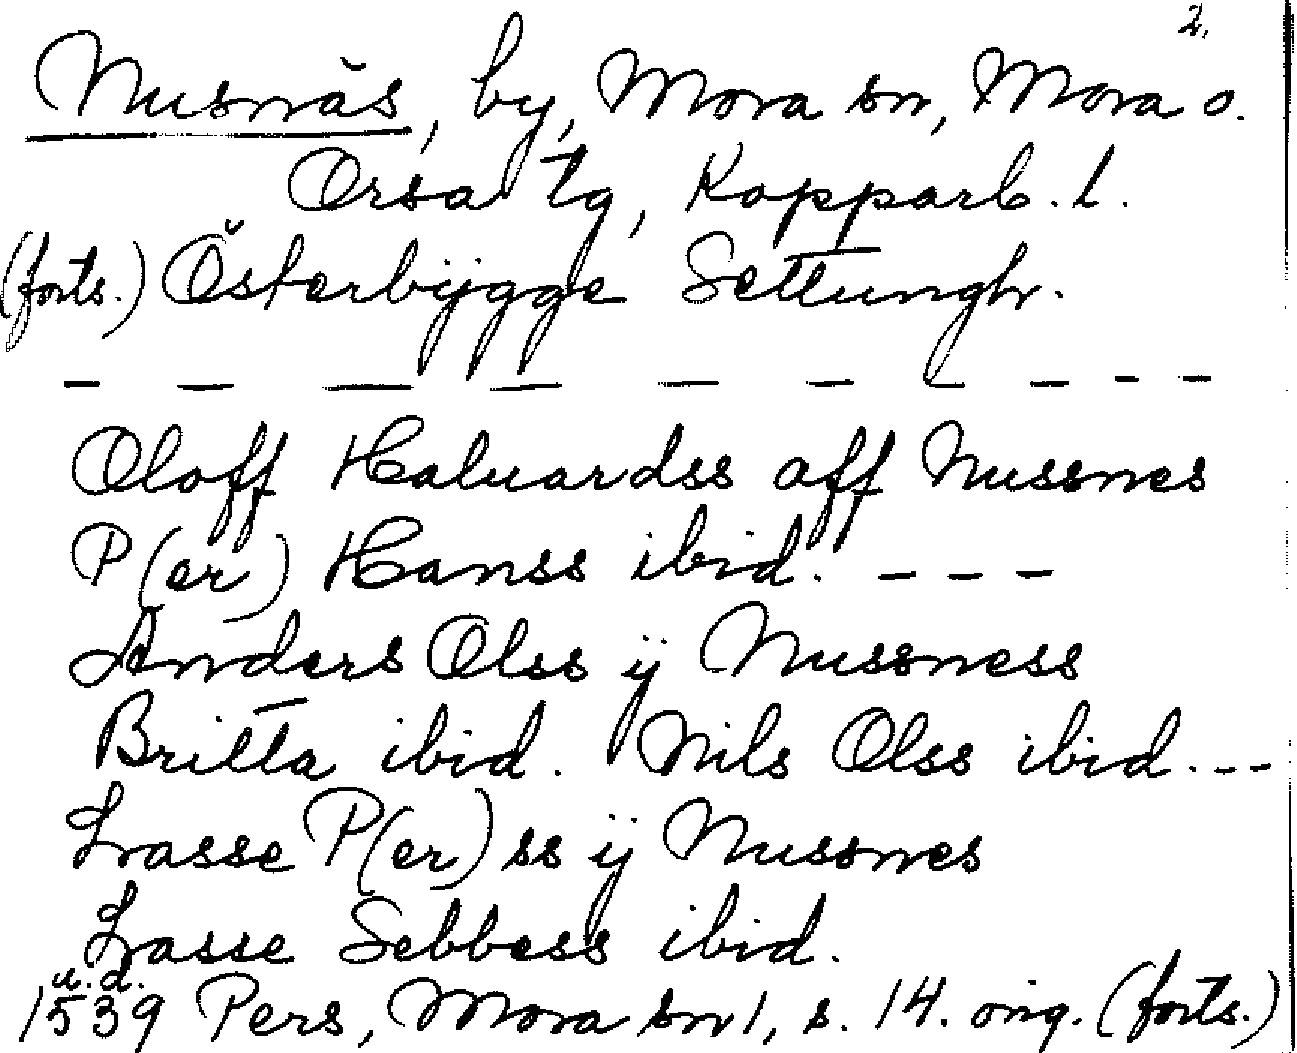 2.
Nusnäs, by, Mora sn, Mora o.
Orsa tg, Kopparb. l.
(forts.) Österbijgge Settungh.
— — — — — — — — - -
Oloff Haluardss aff Nussnes
P(er) Hanss ibid. - - -
Anders Olss ij Nussness
Britta ibid. Nils Olss ibid. - -
Lasse P(er)ss ij Nussnes
Lasse Sebbess ibid.
u. d.
1539 Pers, Mora sn 1, s. 14. orig. (forts.)